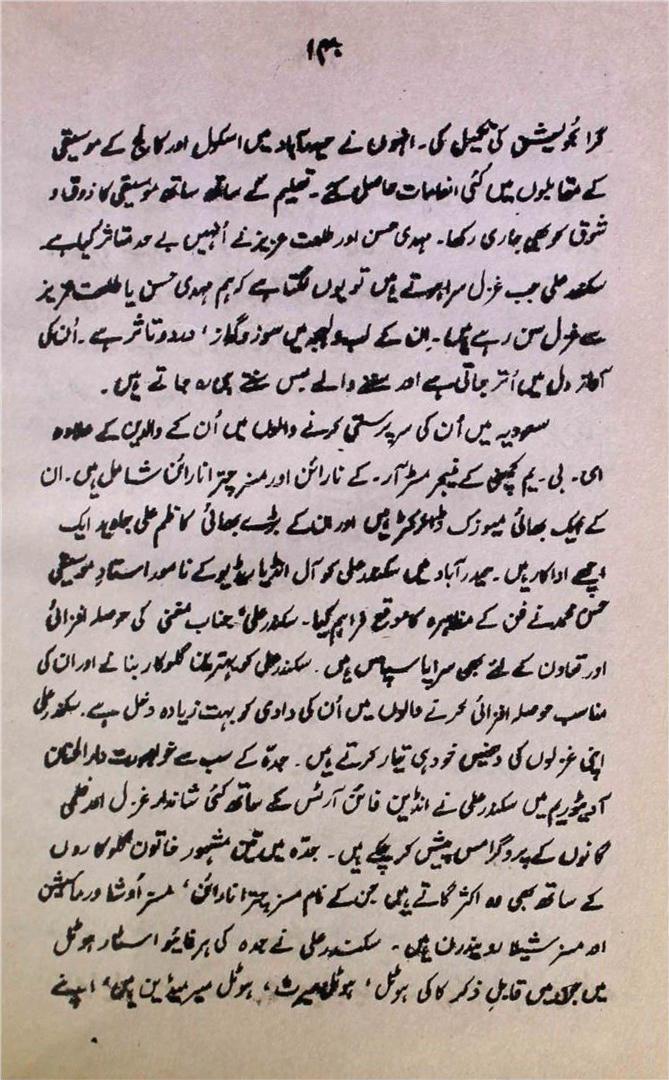 ۱۳۰
گرائجویشن کی تکمیل کی۔ انہوں نے حیدرآباد میں اسکول اور کالج کے موسیقی
کے مقابلوں میں کئی انعامات حاصل کئے۔ تعلیم کے ساتھ ساتھ موسیقی کا ذوق و
شوق کو بھی جاری رکھا۔ مہدی حسن اور طلعت عزیز نے اُنہیں بے حد متاثر کیا ہے
سکندر علی جب غزل سرا ہوتے ہیں تو یوں لگتا ہے کہ ہم مہدی حسن یا طلعت عزیز
سے غزل سن رہے ہیں۔ اِن کے لب و لہجہ میں سوز و گداز، درد و تاثر ہے۔ اُن کی
آواز دل میں اُتر جاتی ہے اور سننے والے بس سنتے ہی رہ جاتے ہیں۔
سعودیہ میں اُن کی سرپرستی کرنے والوں میں اُن کے والدین کے علاوہ
ای۔ بی۔ یم کمپنی کے منیجر مسٹر آر۔ کے نارائن اور مسز چترا نارائن شامل ہیں۔ ان
کے ایک بھائی میوزک ڈائرکٹر ہیں اور ان کے بڑے بھائی کاظم علی جاوید ایک
اچھے اداکار ہیں۔ حیدرآباد میں سکندر علی کو آل انڈیا ریڈیو کے نامور استاد موسیقی
حسن محمد نے فن کے مظاہرہ کا موقع فراہم کیا۔ سکندر علی، جناب مغنی کی حوصلہ افزائی
اور تعاون کے لئے بھی سراپا سپاس ہیں۔ سکندر علی کو بہترین گلوکار بنانے اور ان کی
مناسب حوصلہ افزائی کرنے والوں میں اُن کی دادی کو بہت زیادہ دخل ہے۔ سکندر علی
اپنی غزلوں کی دھنیں خود ہی تیار کرتے ہیں۔ جدہ کے سب سے خوبصورت دار الحنان
آڈیٹوریم میں سکندر علی نے انڈین فائن آرٹس کے ساتھ کئی شاندار غزل اور فلمی
گانوں کے پروگرامس پیش کر چکے ہیں۔ جدہ میں تین مشہور خاتون گلوکاروں
کے ساتھ بھی وہ اکثر گاتے ہیں جن کے نام مسز چترا نارائن، مسز اُوشا
اور مسز شیلا رویندرن ہیں۔ سکندر علی نے جدہ کی ہر فائیو اسٹار ہوٹل
میں جن میں قابلِ ذکر کاکی ہوٹل، ہوٹل میرٹ، ہوٹل میریڈین ہیں، اپنے